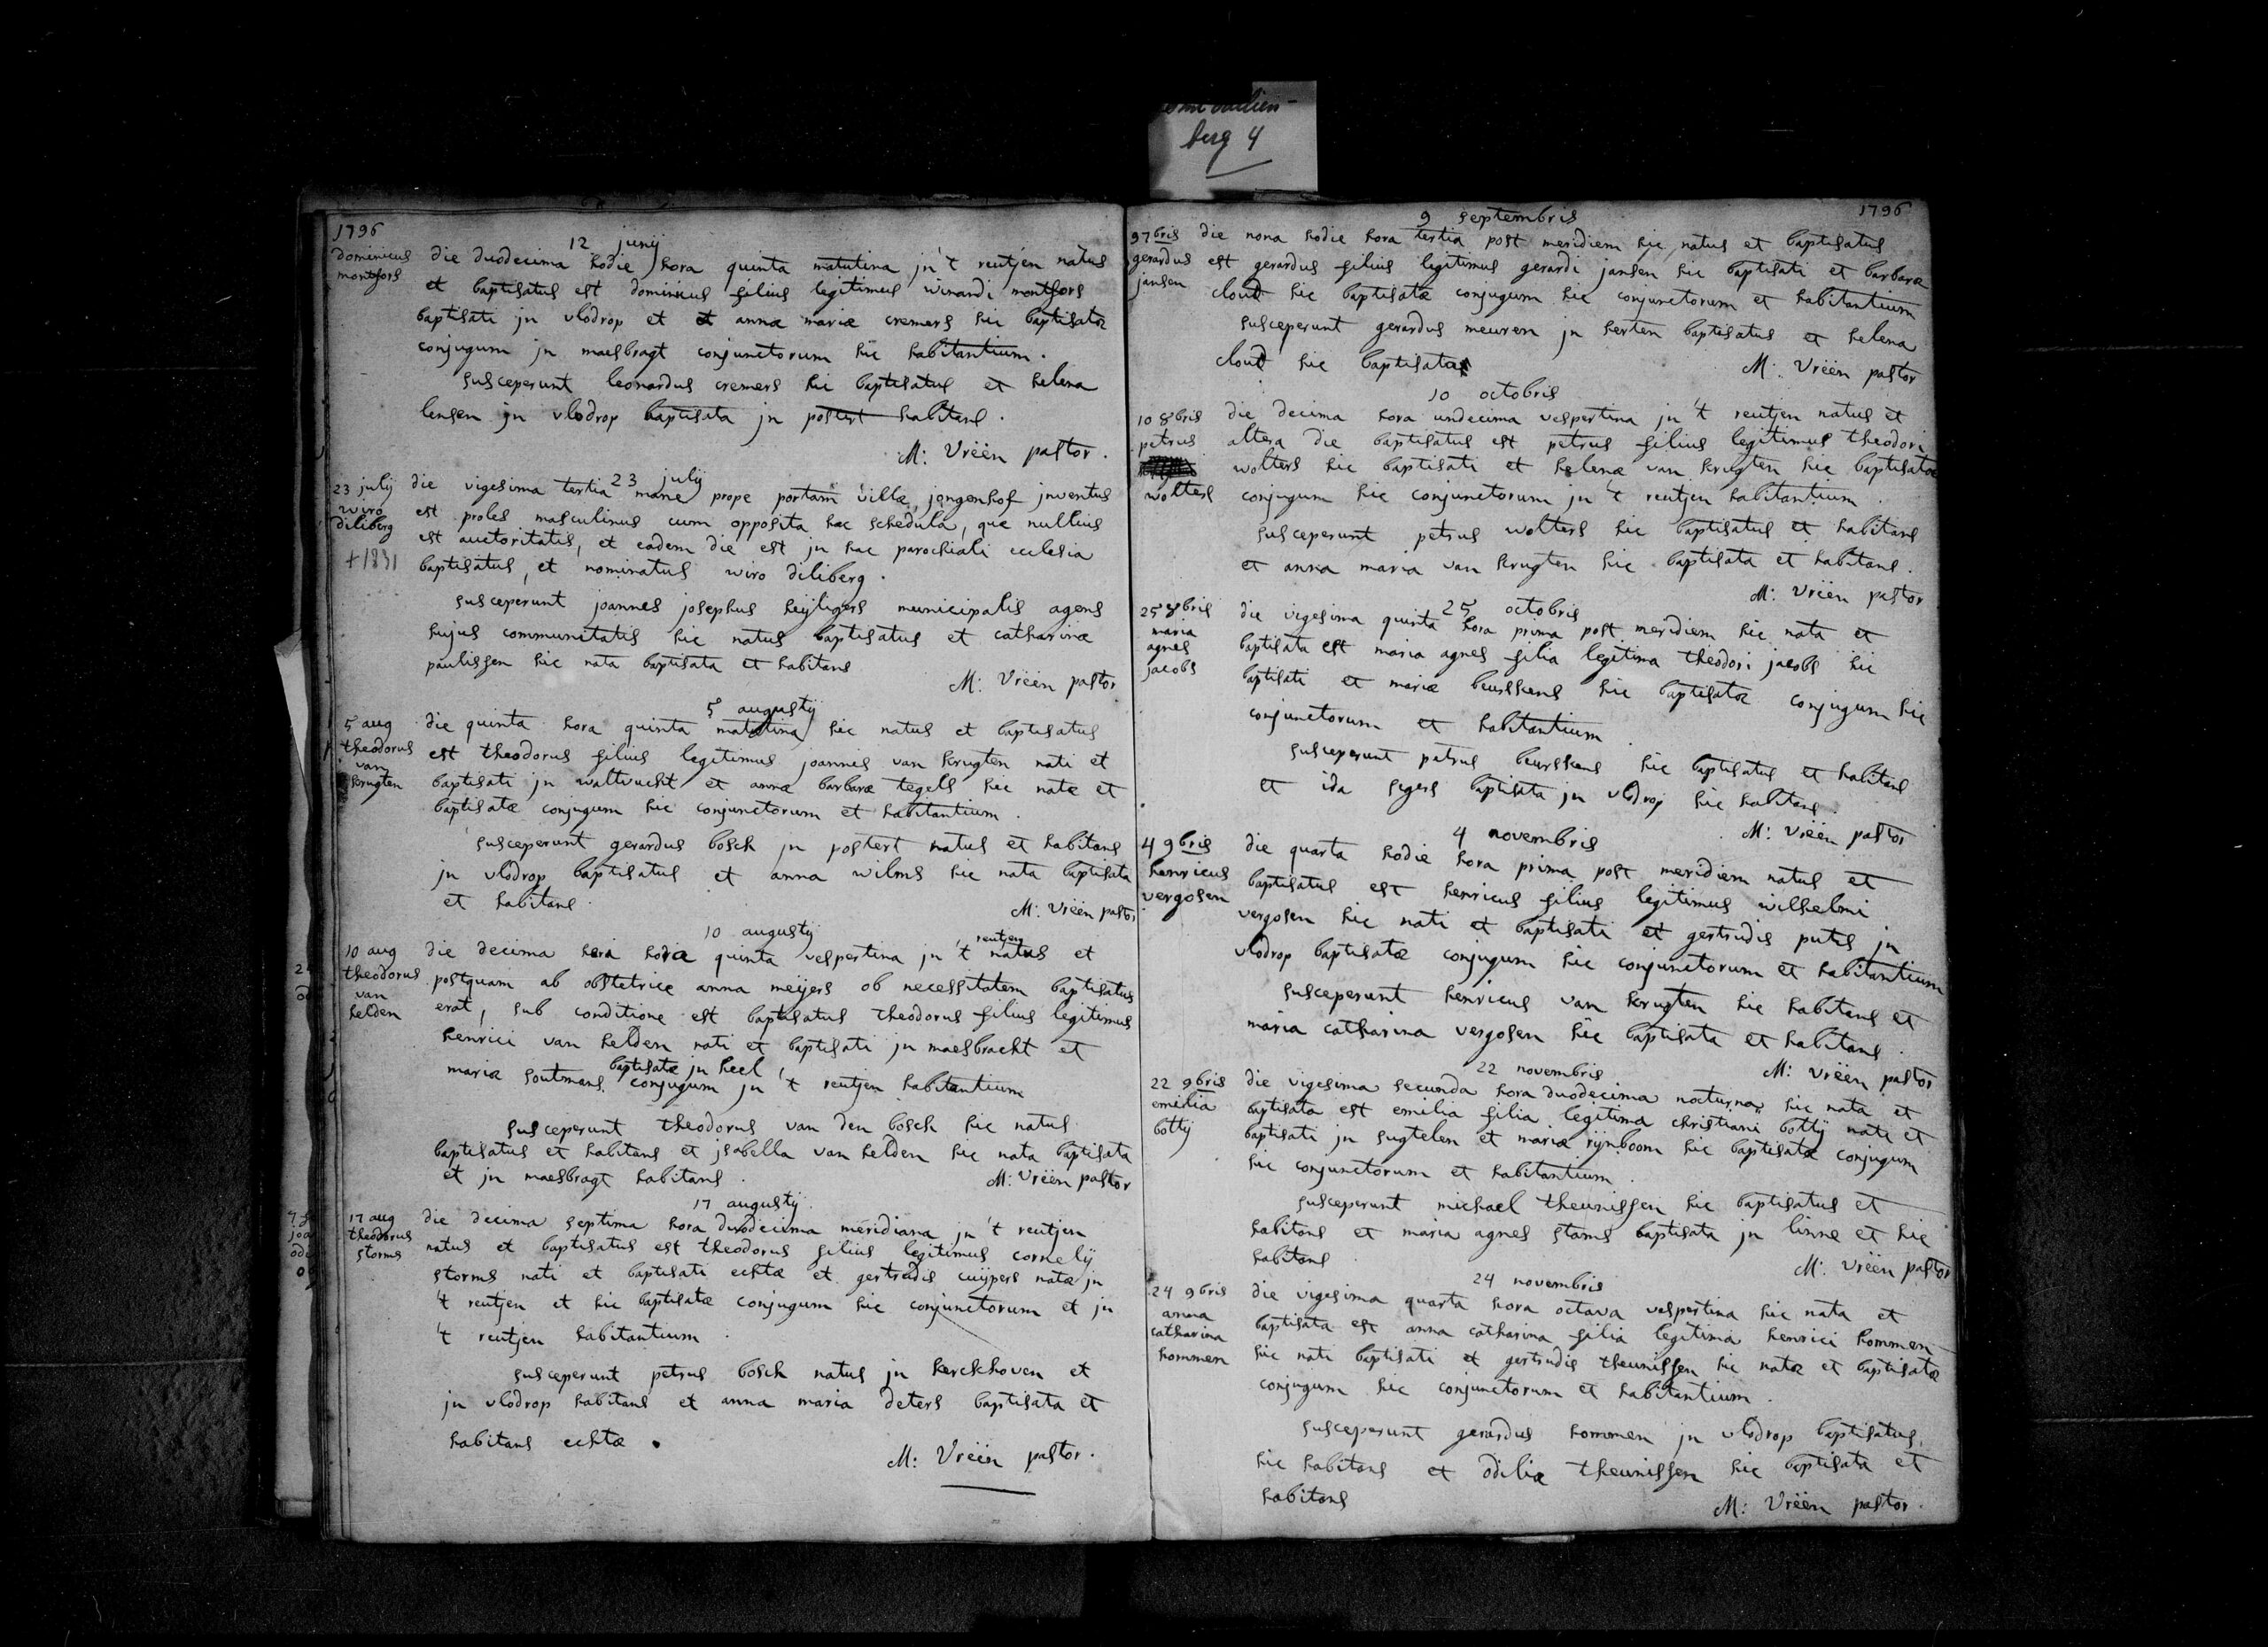 berg 4
1796
12 junij
dominicus
montfors
die duodecima hodie hora quinta matutina jn 't reutjen natus
et baptisatus est dominicus filius legitimus winandi montfors
baptisati jn vlodrop et et annæ mariæ cremers hic baptisatæ
conjugum jn maesbragt conjunctorum hic habitantium.
susceperunt leonardus cremers hic baptisatus et helena
lensen jn vlodrop baptisata jn postert habitans.
M: Vrëën pastor.
23 july
23 julij
wiro
diliberg
+1831
die vigesima tertia mane prope portam villæ jongenhof jnventus
est proles masculinus cum opposita hac schedula, que nullius
est auctoritatis, et eadem die est jn hac parochiali ecclesia
baptisatus, et nominatus wiro diliberg.
susceperunt joannes josephus heijligers municipalis agens
hujus communitatis hic natus baptisatus et catharina
paulissen hic nata baptisata et habitans
M: Vrëën pastor
5 augustij
5 aug
theodorus
van
krugten
die quinta hora quinta matutina hic natus et baptisatus
est theodorus filius legitimus joannis van krugten nati et
baptisati jn waltvucht et annæ barbaræ tegels hic natæ et
baptisatæ conjugum hic conjunctorum et habitantium.
susceperunt gerardus bosch jn postert natus et habitans
jn vlodrop baptisatus et anna wilms hic nata baptisata
et habitans.
M: Vrëën pastor
10 augustij
10 aug
theodorus
van
helden
die decima hora quinta vespertina jn 't reutjen natus et
postquam ab obstetrice anna meijers ob necessitatem baptisatus
erat, sub conditione est baptisatus theodorus filius legitimus
henrici van helden nati et baptisati jn maesbracht et
mariæ soutmans baptisatæ jn heel, conjugum jn 't reutjen habitantium
susceperunt theodorus van den bosch hic natus
baptisatus et habitans et jsabella van helden hic nata baptisata
et jn maesbragt habitans.
M: Vrëën pastor
17 augustij
17 aug
theodorus
storms
die decima septima hora duodecima meridiana jn 't reutjen
natus et baptisatus est theodorus filius legitimus cornelij
storms nati et baptisati echtæ et gertrudis cuijpers natæ jn
't reutjen et hic baptisatæ conjugum hic conjunctorum et jn
't reutjen habitantium.
susceperunt petrus bosch natus jn kerckhoven et
jn vlodrop habitans et anna maria deters baptisata et
habitans echtæ.
M: Vrëën pastor.
9 septembris
1796
9 7bris
gerardus
jansen
die nona hodie hora tertia post meridiem hic natus et baptisatus
est gerardus filius legitimus gerardi jansen hic baptisati et barbaræ
clout hic baptisatæ conjugum hic conjunctorum et habitantium
susceperunt gerardus meuren jn herten baptisatus et helena
clout hic baptisata
M: Vrëën pastor
10 octobris
10 8bris
petrus
wolters
die decima hora undecima vespertina jn 't reutjen natus et
altera die baptisatus est petrus filius legitimus theodori
wolters hic baptisati et helenæ van krugten hic baptisatæ
conjugum hic conjunctorum jn 't reutjen habitantium.
susceperunt petrus wolters hic baptisatus et habitans
et anna maria van krugten hic baptisata et habitans.
M: Vrëën pastor
25 octobris
25 8bris
maria
agnes
jacobs
die vigesima quinta hora prima post meridiem hic nata et
baptisata est maria agnes filia legitima theodori jacobs hic
baptisati et mariæ beurskens hic baptisatæ conjugum hic
conjunctorum et habitantium.
susceperunt petrus beurskens hic baptisatus et habitans
et ida segers baptisata jn vlodrop hic habitans.
M: Vrëën pastor
4 novembris
4 9bris
henricus
vergosen
die quarta hodie hora prima post meridiem natus et
baptisatus est henricus filius legitimus wilhelmi
vergosen hic nati et baptisati et gertrudis puts jn
vlodrop baptisatæ conjugum hic conjunctorum et habitantium
susceperunt henricus van krugten hic habitans et
maria catharina vergosen hic baptisata et habitans.
M: Vrëën pastor
22 novembris
22 9bris
emilia
bottij
die vigesima secunda hora duodecima nocturna hic nata et
baptisata est emilia filia legitima christiani bottij nati et
baptisati jn sugtelen et mariæ rijnboom hic baptisatæ conjugum
hic conjunctorum et habitantium.
susceperunt michael theunissen hic baptisatus et
habitans et maria agnes stams baptisata jn linne et hic
habitans.
M: Vrëën pastor
24 novembris
24 9bris
anna
catharina
hommen
die vigesima quarta hora octava vespertina hic nata et
baptisata est anna catharina filia legitima henrici hommen
hic nati baptisati et gertrudis theunissen hic natæ et baptisatæ
conjugum hic conjunctorum et habitantium.
susceperunt gerardus hommen jn vlodrop baptisatus,
hic habitans et odilia theunissen hic baptisata et
habitans
M: Vrëën pastor.